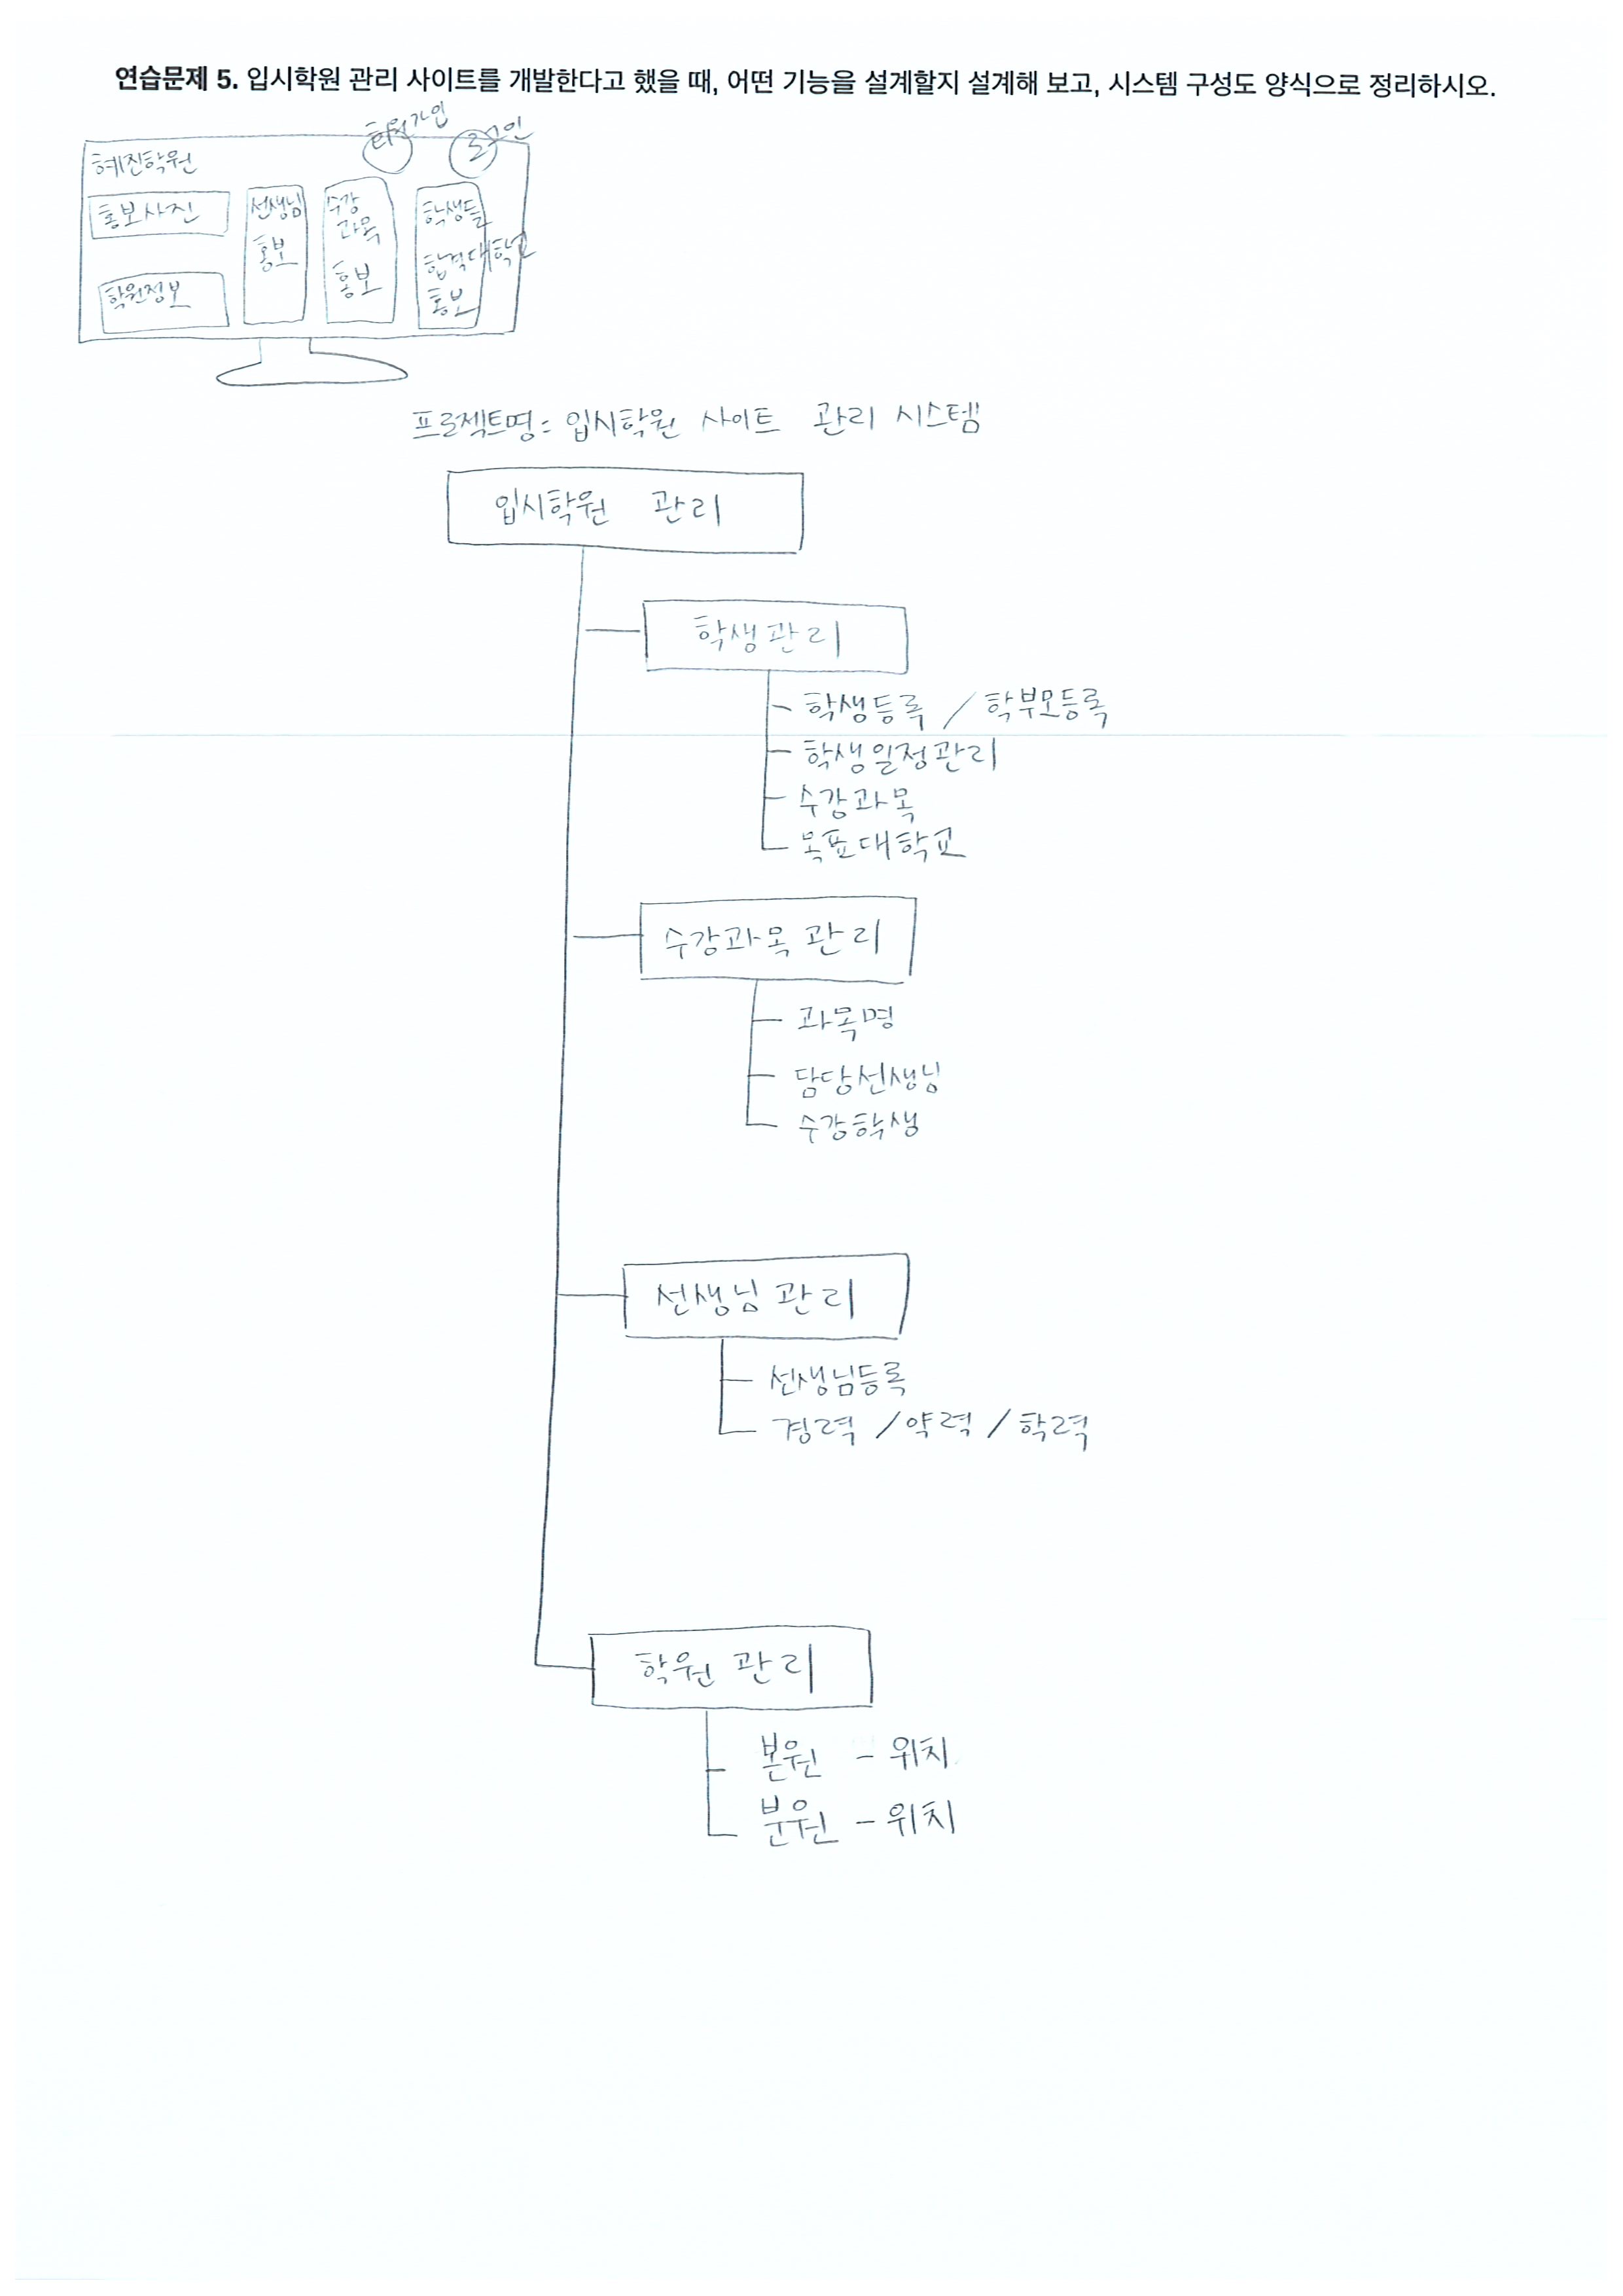 연습문제 5. 입시학원 관리 사이트를 개발한다고 했을 때, 어떤 기능을 설계할지 설계해 보고, 시스템 구성도 양식으로 정리하시오.
회원가입
로그인
혜진학원
홍보사진
학원정보
선생님
홍보
수강
과목
홍보
학생들
합격대학교
홍보
프로젝트명 = 입시학원 사이트 관리 시스템
입시학원 관리
학생관리
학생등록 / 학부모등록
학생일정관리
수강과목
목표대학교
수강과목 관리
과목명
담당선생님
수강학생
선생님 관리
선생님등록
경력 / 약력 / 학력
학원 관리
본원 - 위치
분원 - 위치